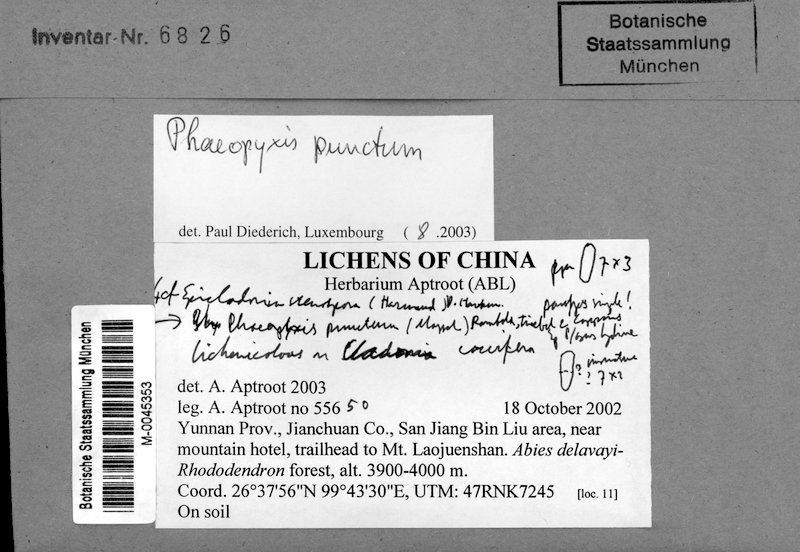 Inventar-Nr. 6826
Botanische
Staatssammlung
München
Phaeopyxis punctum
det. Paul Diederich, Luxembourg ( 8 .2003)
LICHENS OF CHINA
Herbarium Aptroot (ABL)
7 x 3
→ Phaeopyxis punctum
lichenicolous on Cladonia
immature
? 7x2
det. A. Aptroot 2003
leg. A. Aptroot no 55650 18 October 2002
Yunnan Prov., Jianchuan Co., San Jiang Bin Liu area, near
mountain hotel, trailhead to Mt. Laojuenshan. Abies delavayi-
Rhododendron forest, alt. 3900-4000 m.
Coord. 26°37'56"N 99°43'30"E, UTM: 47RNK7245 [loc. 11]
On soil
Botanische Staatssammlung München
M-0045353